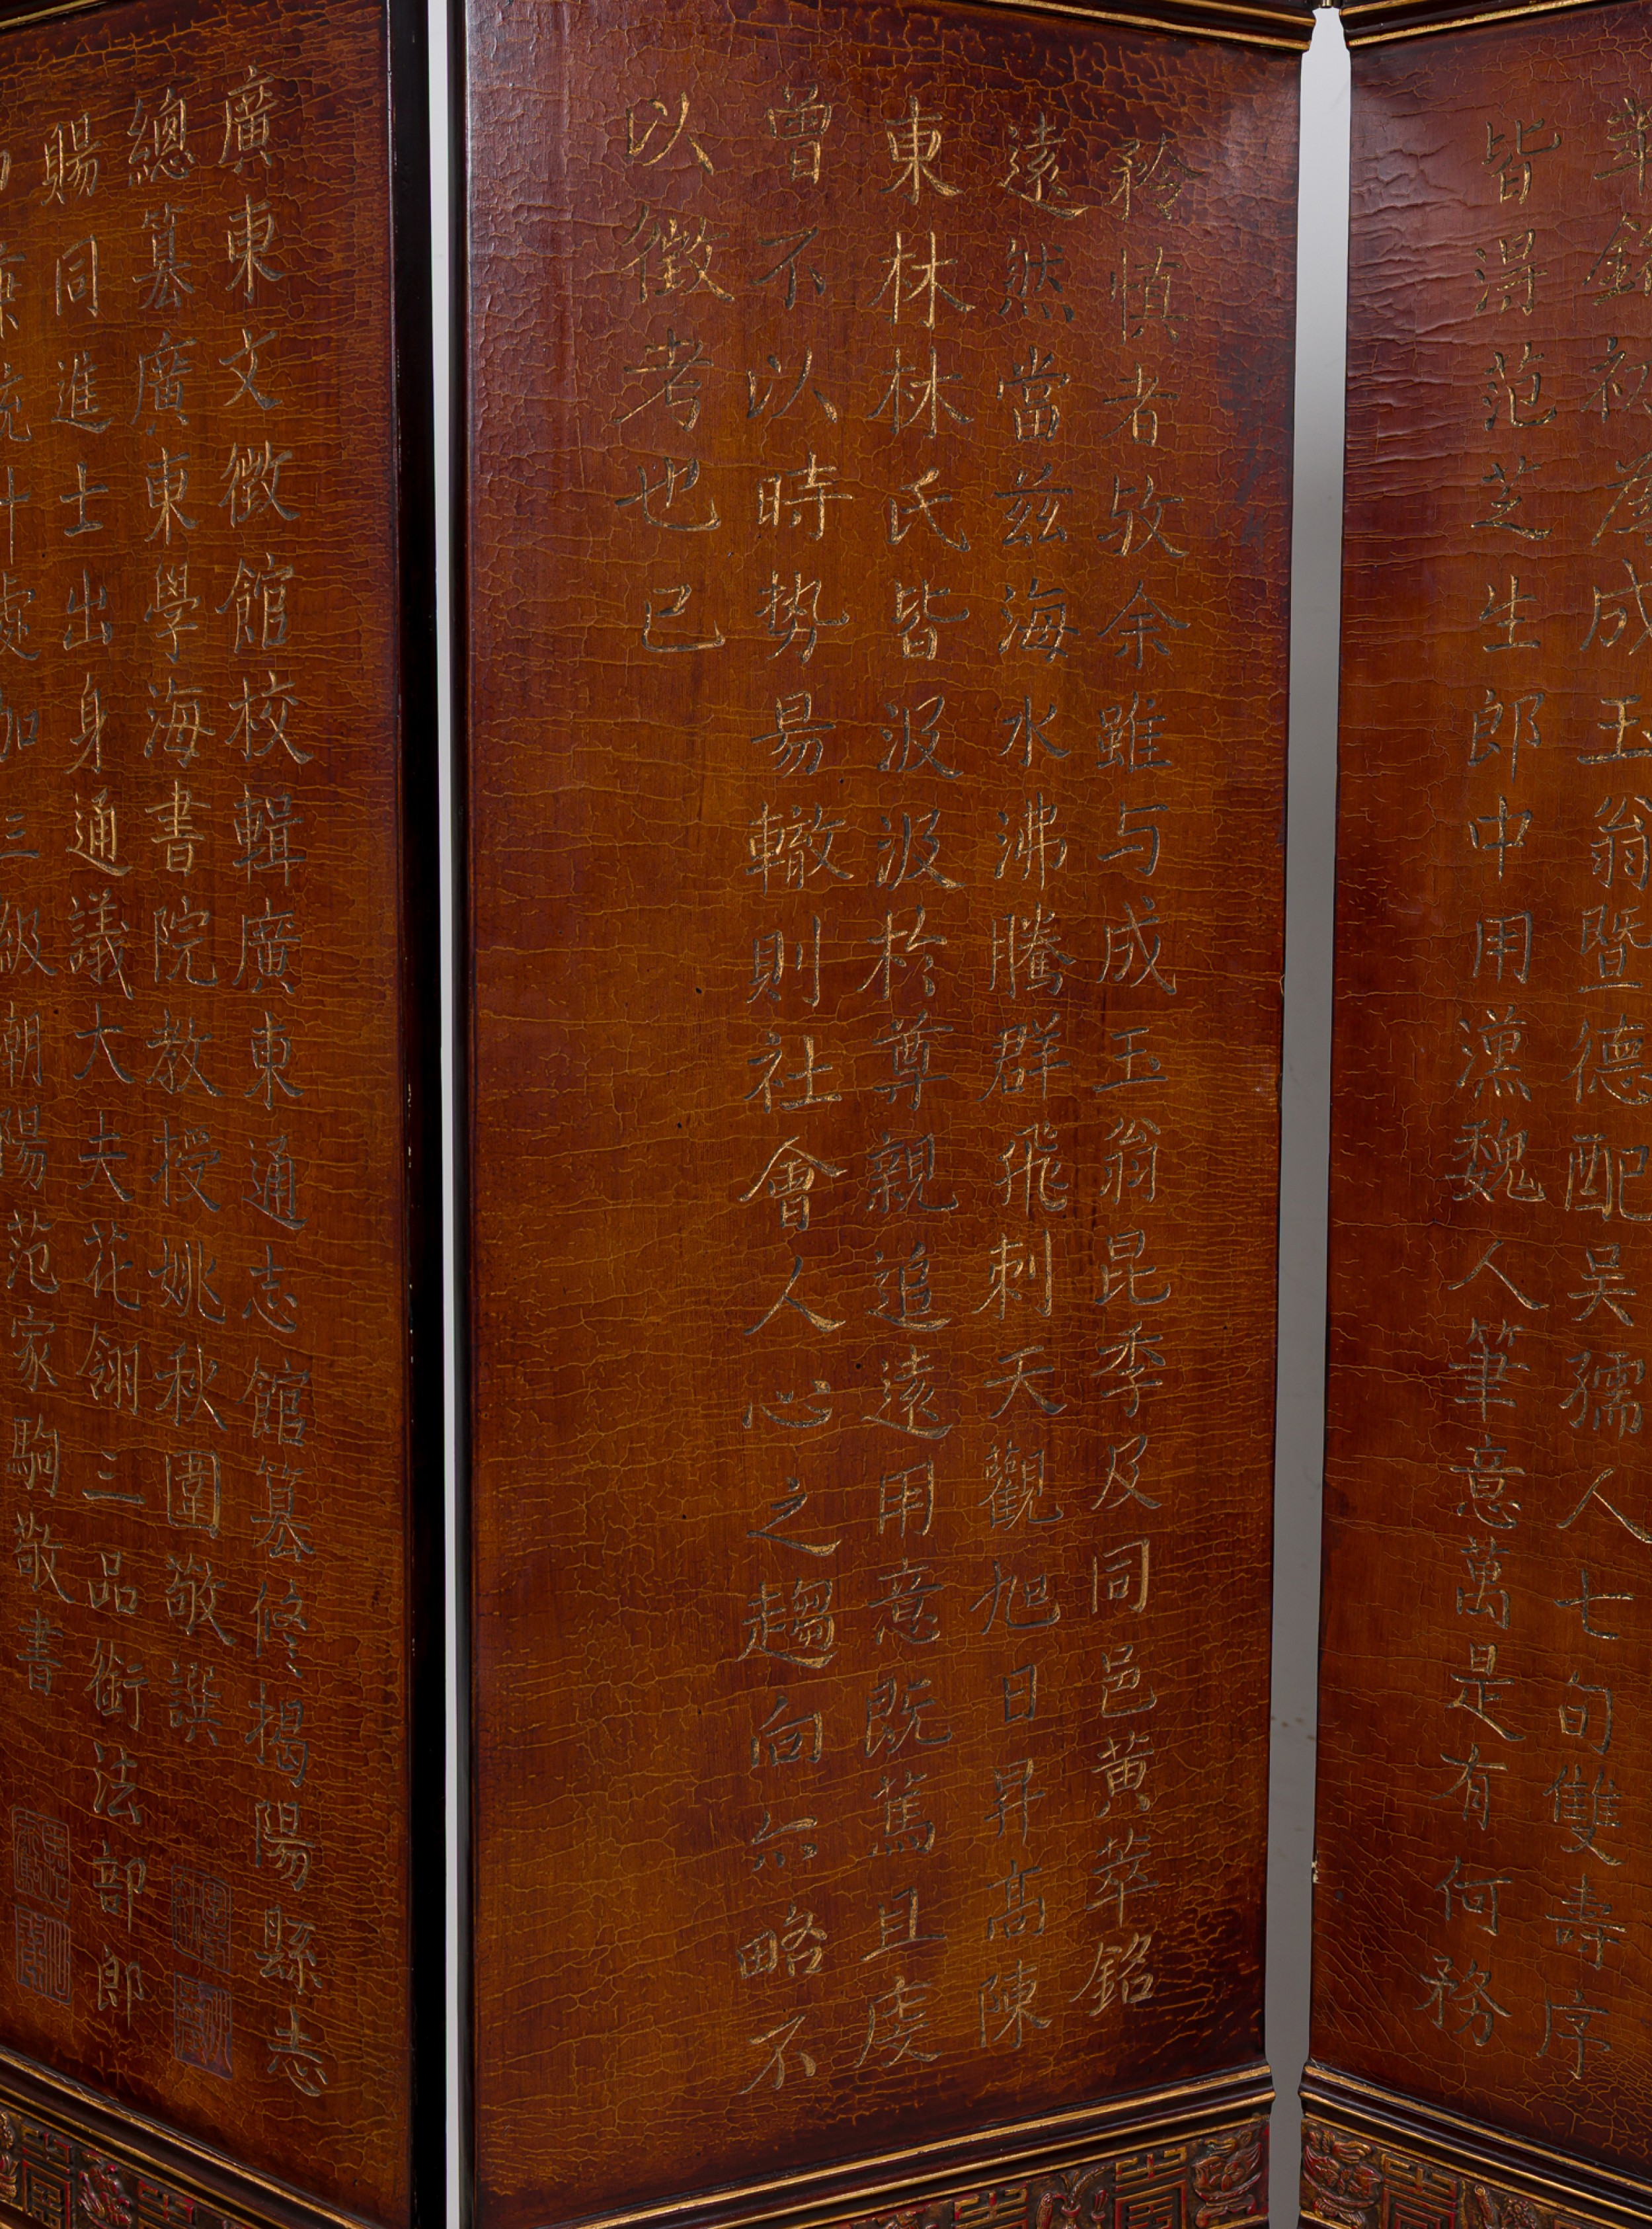 初為成玉翁暨德配吳孺人七旬雙壽序
皆得范芝生郎中用漢魏人筆意萬是有何務
矜慎者攷余雖与成玉翁昆季及同邑黃萃銘
遠然當茲海水沸騰群飛刺天觀旭日昇高陳
東林林氏皆汲汲於尊親追遠用意既篤且虔
曾不以時勢易轍則社會人心之趨向亦略不
以徵考也已
廣東文徵館校輯廣東通志館纂修揭陽縣志
總纂廣東學海書院教授姚秋園敬撰
賜同進士出身通議大夫花翎三品銜法部郎
統計處加三級朝陽范家駒敬書